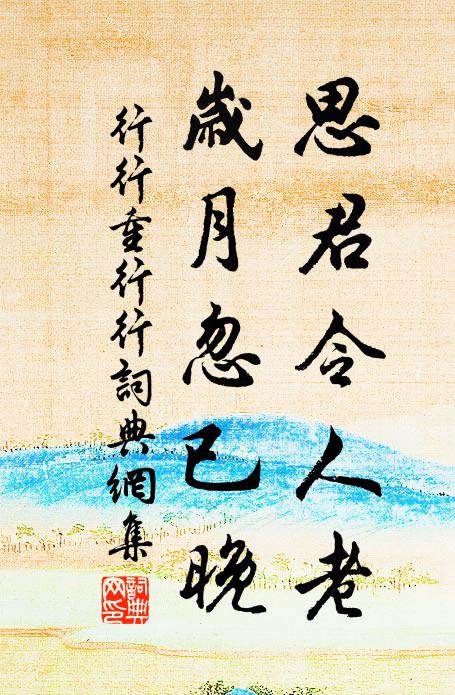 思君令人老
歲月忽已晚
行行重行行詞典網集
詞典
网印